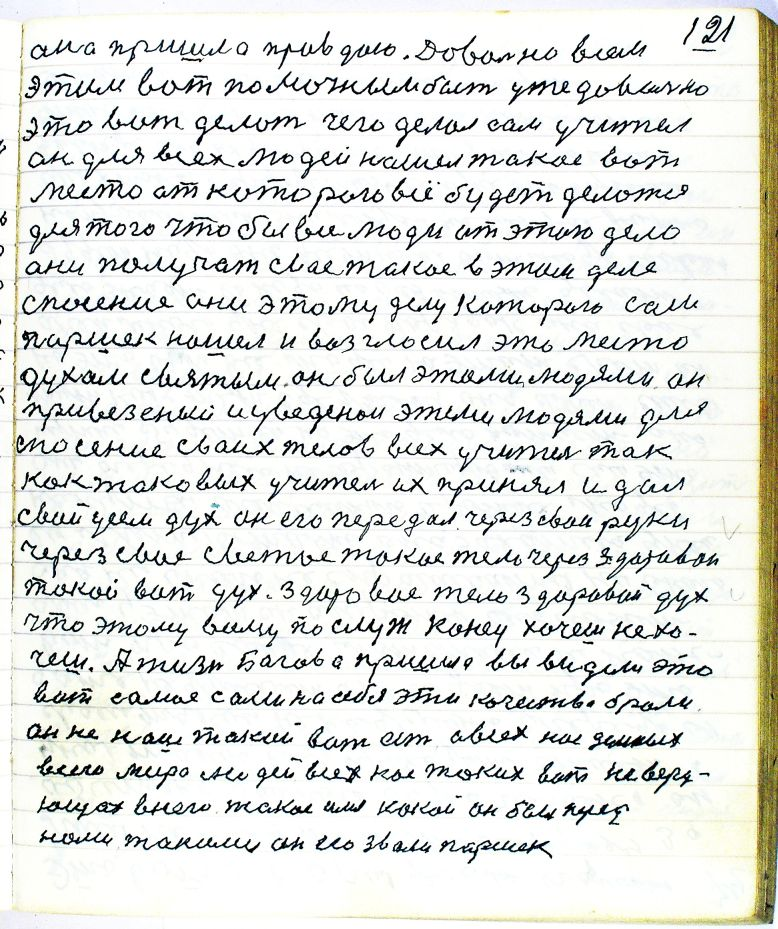 121
ана пришла правдою. Доволно всем
этим вот помочным быт уже доволно
это вот делат чего делал сам учител
он для всех людей нашел такое вот
место от которого всё будет деложе
для того что бы все люди от этою дело
они получат свае такое в этом деле
спосение они этому делу которого сам
паршек нашел и возгласил это место
духом святым. он был этами людями он
привезеный и уведеной этеми людями для
спосение своих телов всех учител так
как таковых учител их принял и дал
свой усем дух он его передал через свои руки
через свае светое такое тело через здоровое
такой вот дух. Здоровое тело здоровый дух
что этому всему послуж конец хочеш не хо-
чеш. А жизн Богова пришла вы видели это
вот самое сами на себя эти качества брали
он не наш такой вот от овсех нас земных
всего мира людей всех нас таких вот не веру-
ющах в него такое имя какой он был пред
нами такими он его звали паршек